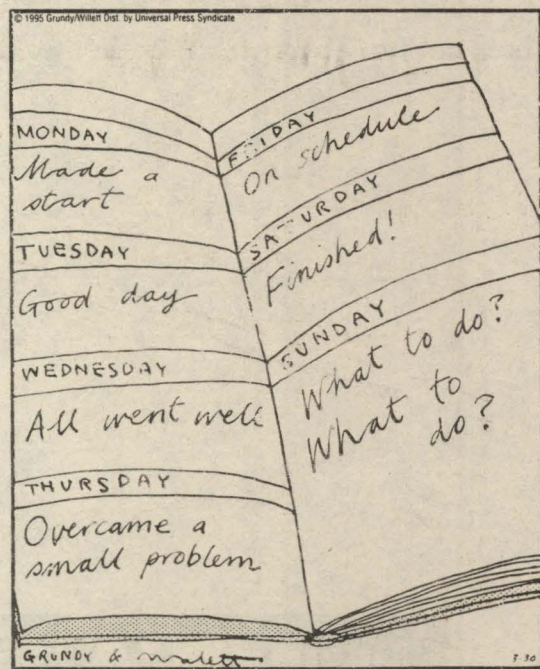 © 1995 Grundy/Willett Dist. by Universal Press Syndicate
MONDAY
Made a
start
TUESDAY
Good day
WEDNESDAY
All went well
THURSDAY
Overcame a
small problem
FRIDAY
On schedule
SATURDAY
Finished!
SUNDAY
What to do?
What to
do?
GRUNDY & Willett